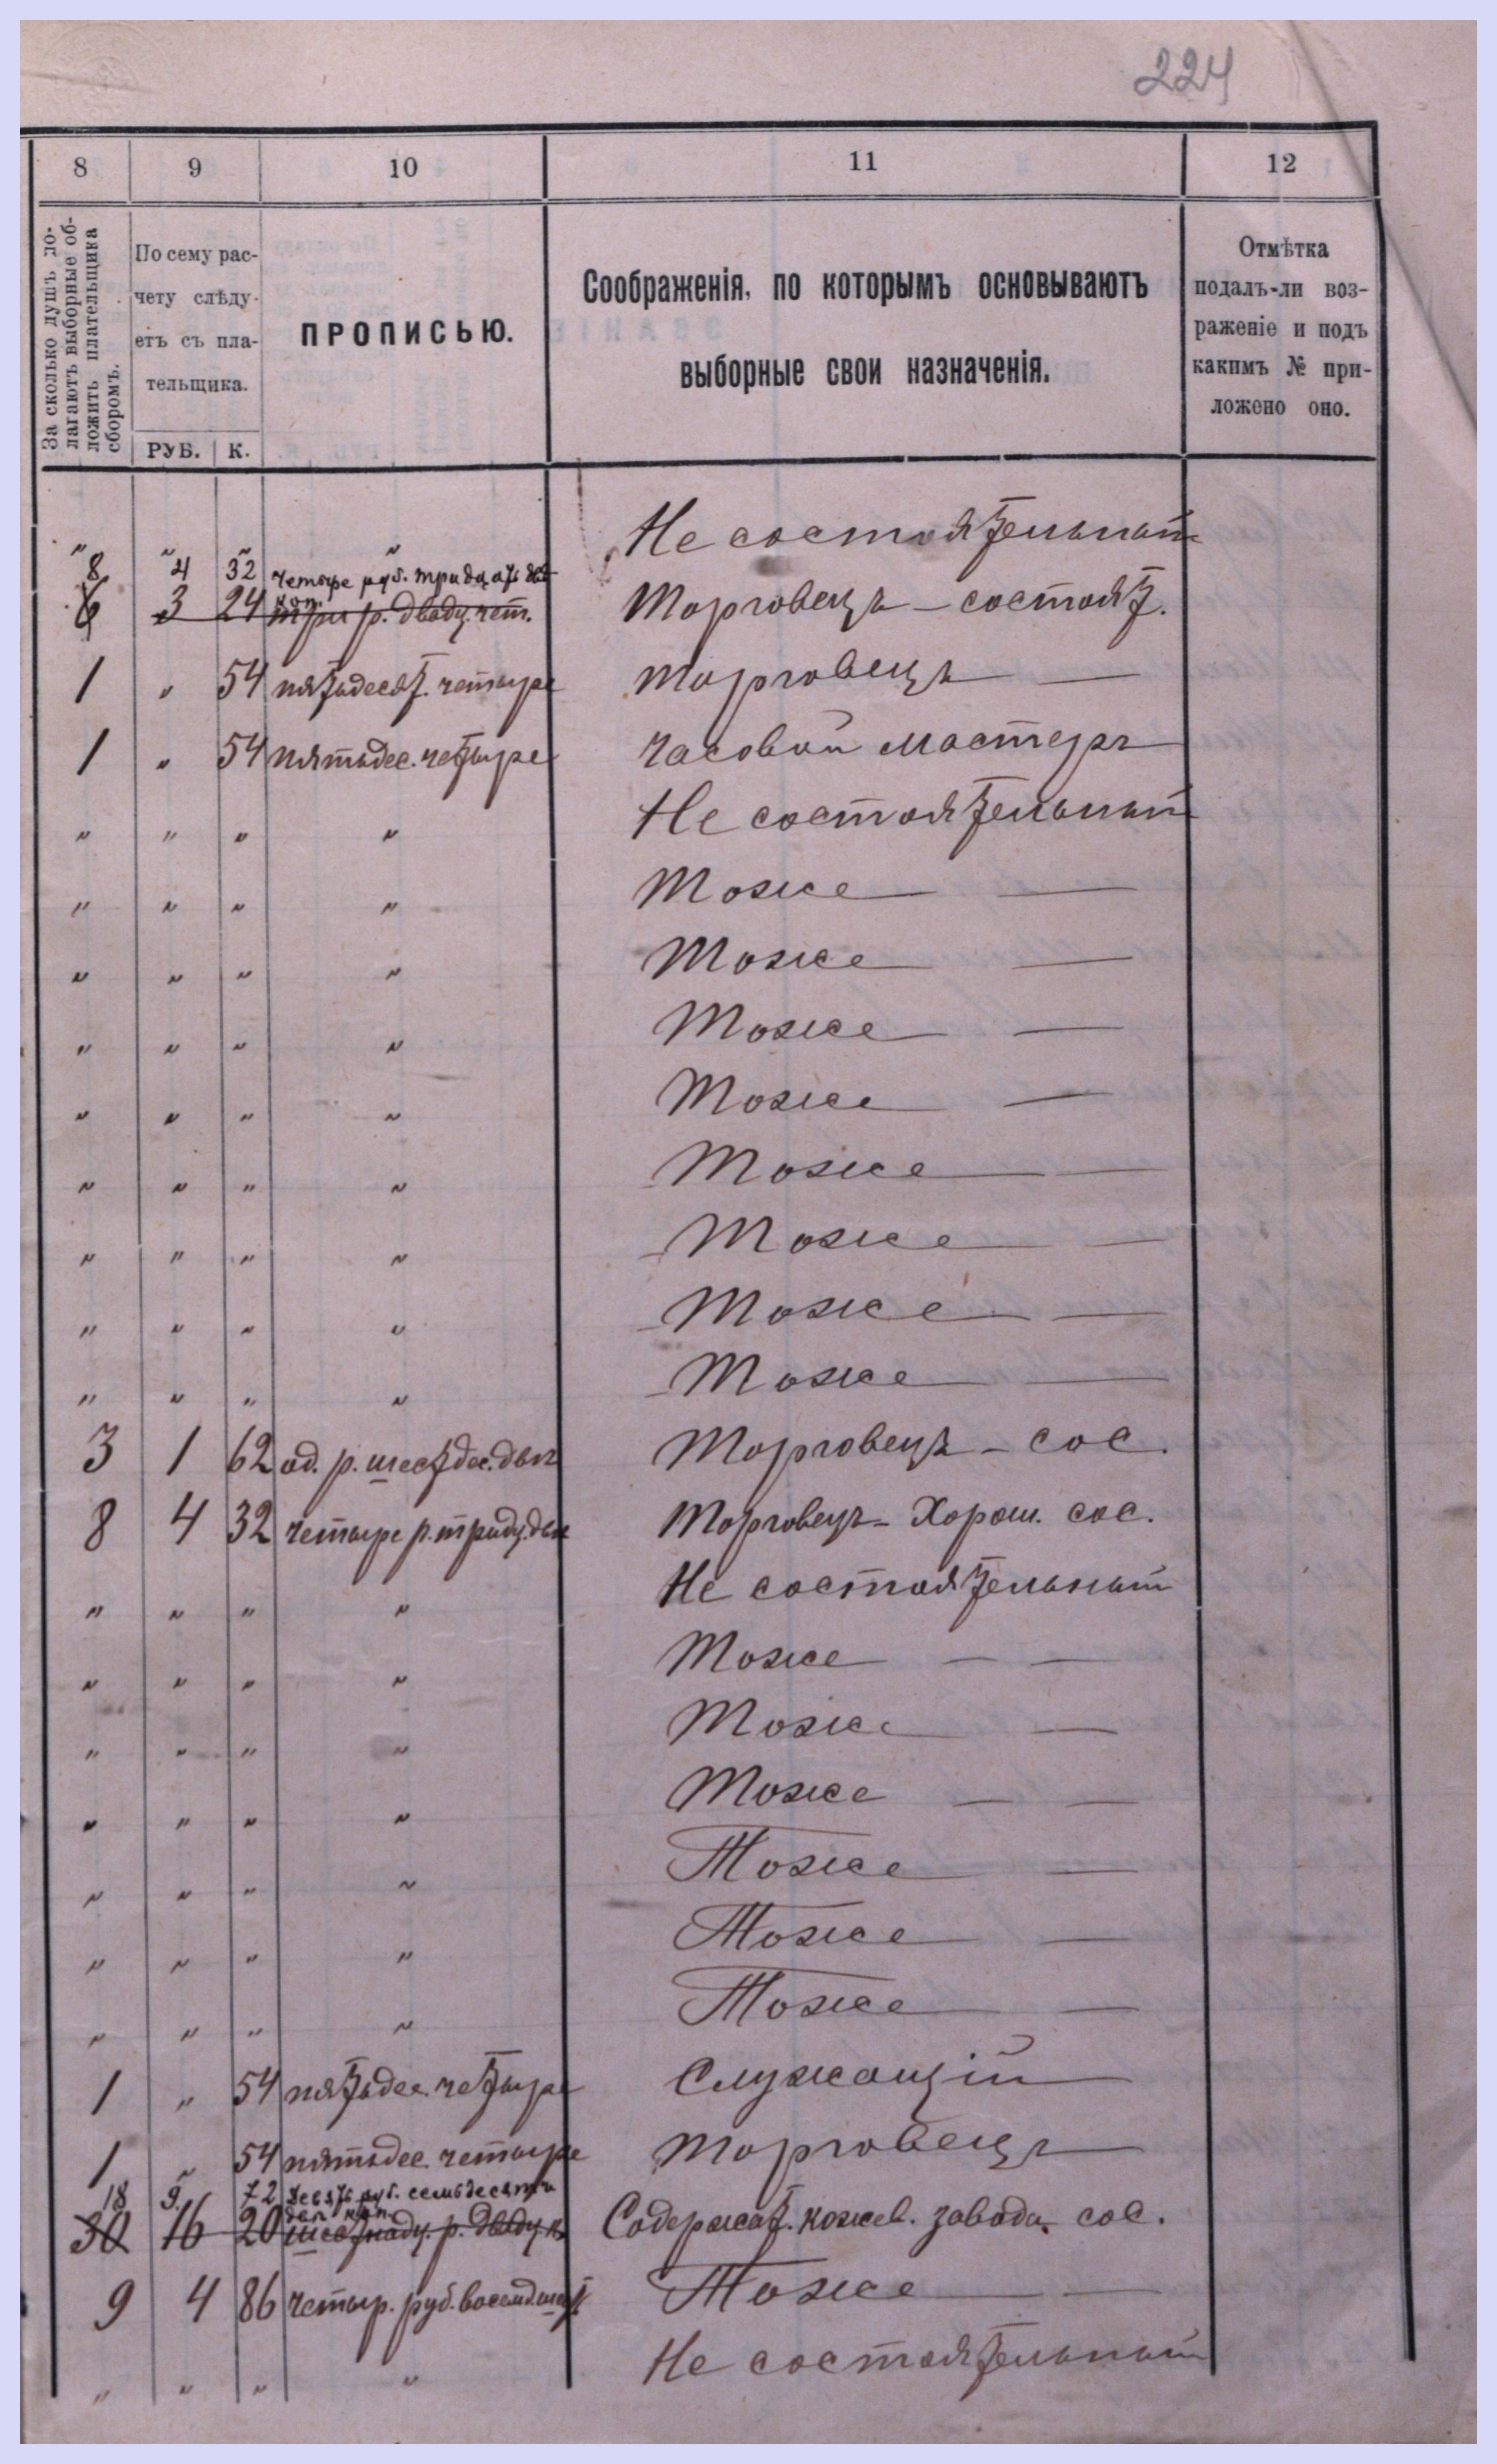 224
8 9 10 11 12
За сколько душъ по-
лагаютъ выборные об-
ложить плательщика
сборомъ.
По сему рас-
чету слѣду-
етъ съ пла-
тельщика.
РУБ. К.
ПРОПИСЬЮ.
Соображенія, по которымъ основываютъ
выборные свои назначенія.
Отмѣтка
подалъ-ли воз-
раженіе и подъ
какимъ № при-
ложено оно.
" " " " Не состоятельный
8 4 32 четыре руб. тридцать две
коп.
6 3 24 три р. двадц. чет. Торговецъ - состоят.
1 " 54 пятьдесят. четыре торговецъ —
1 " 54 пятьдес. четыре часовой мастеръ
" " " " Не состоятельный
" " " " Тоже —
" " " " Тоже —
" " " " Тоже —
" " " " Тоже —
" " " " Тоже —
" " " " Тоже —
" " " " Тоже —
" " " " Тоже —
3 1 62 од. р. шестдес. два Торговецъ - сос.
8 4 32 четыре р. тридц. две Торговецъ - Хорош. сос.
" " " " Не состоятельный
" " " " Тоже — —
" " " " Тоже —
" " " " Тоже — —
" " " " Тоже —
" " " " Тоже —
" " " " Тоже —
1 " 54 пятьдес. четыре Служащій
1 " 54 пятьдес. четыре торговецъ
18 9. 72 девять руб. семьдесятъ
две коп.
30 16 20 шестнадц. р. двадц. к. Содержат. кожев. завода, сос.
9 4 86 четыр. руб. восемд. шест Тоже —
" " " " Не состоятельный